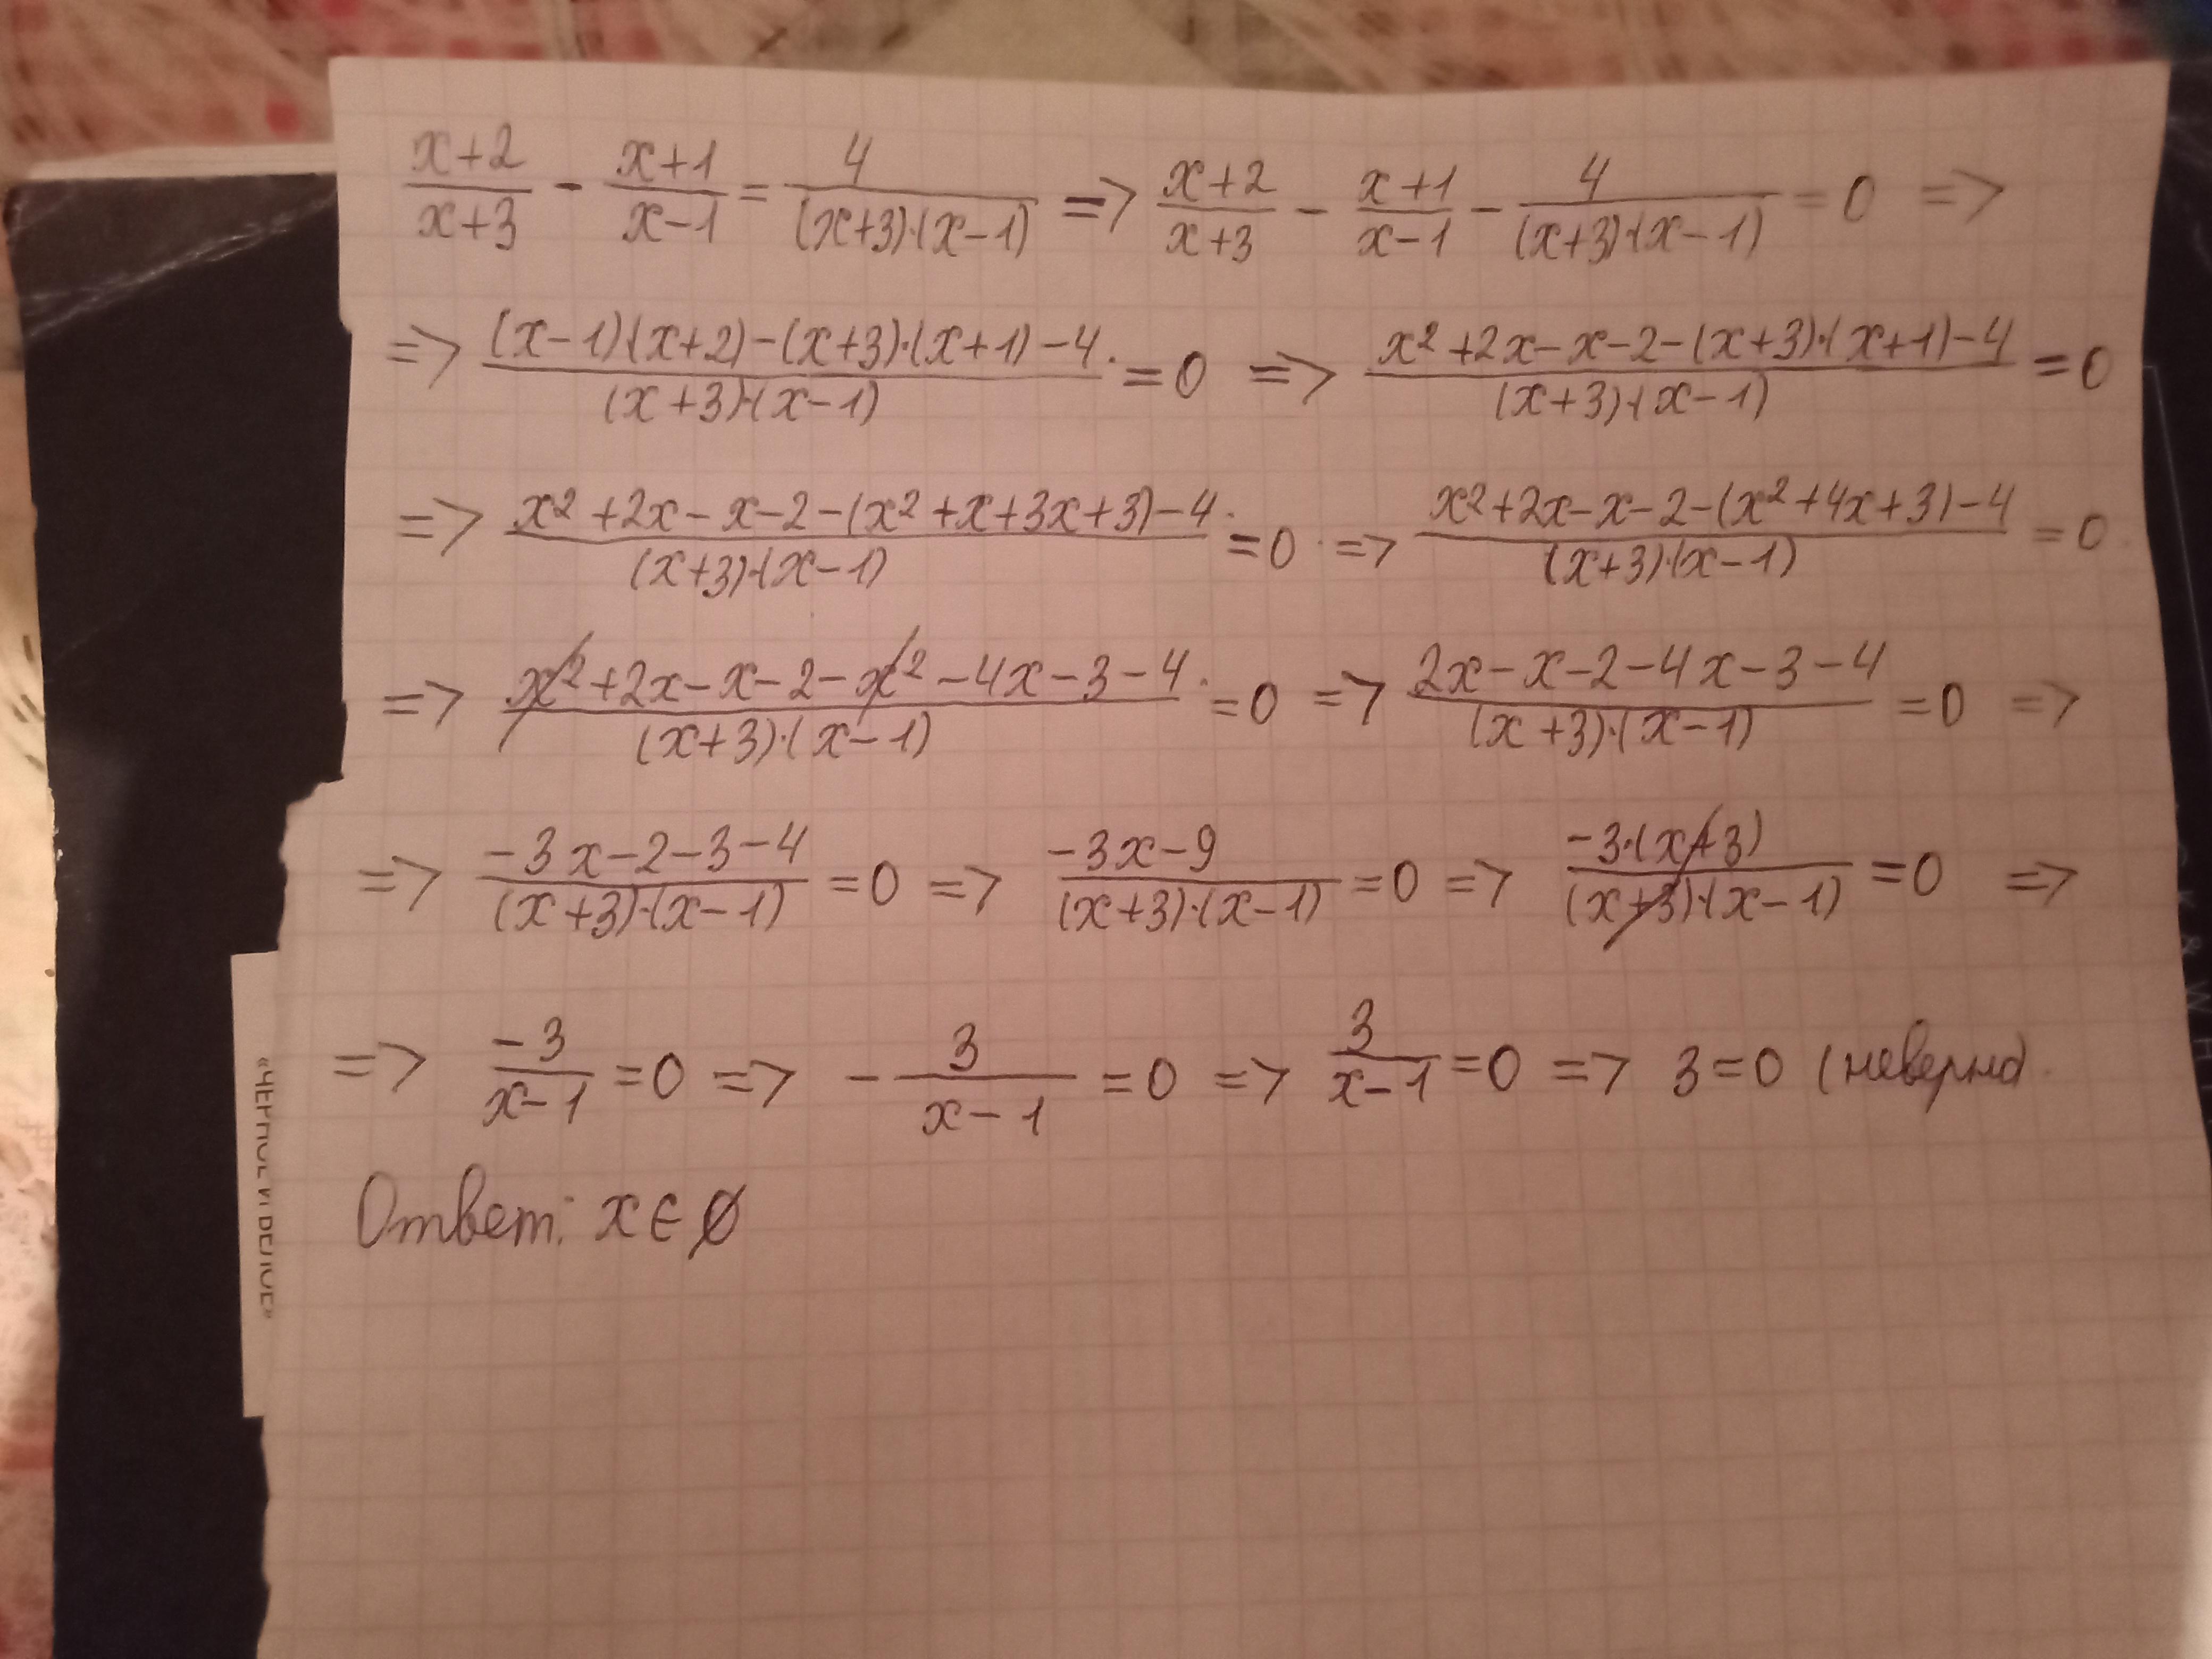 (x+2)/(x+3) - (x+1)/(x-1) = 4/((x+3)·(x-1)) => (x+2)/(x+3) - (x+1)/(x-1) - 4/((x+3)·(x-1)) = 0 =>
=> ((x-1)·(x+2)-(x+3)·(x+1)-4)/((x+3)·(x-1)) = 0 => (x²+2x-x-2-(x+3)·(x+1)-4)/((x+3)·(x-1)) = 0
=> (x²+2x-x-2-(x²+x+3x+3)-4)/((x+3)·(x-1)) = 0 => (x²+2x-x-2-(x²+4x+3)-4)/((x+3)·(x-1)) = 0
=> (x²+2x-x-2-x²-4x-3-4)/((x+3)·(x-1)) = 0 => (2x-x-2-4x-3-4)/((x+3)·(x-1)) = 0 =>
=> (-3x-2-3-4)/((x+3)·(x-1)) = 0 => (-3x-9)/((x+3)·(x-1)) = 0 => (-3·(x+3))/((x+3)·(x-1)) = 0 =>
=> (-3)/(x-1) = 0 => - 3/(x-1) = 0 => 3/(x-1) = 0 => 3=0 (неверно)
Ответ: x∈∅
«ЧЕРНОЕ И БЕЛОЕ»